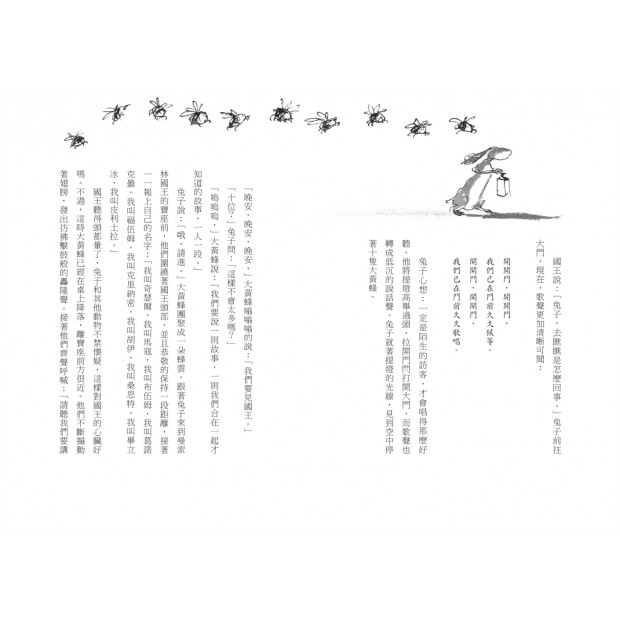 國王說：「兔子，去瞧瞧是怎麼回事。」兔子前往
大門，現在，歌聲更加清晰可聞：
開開門，開開門，
我們已在門前久久候等。
開開門，開開門，
我們已在門前久久歌唱。
兔子心想：一定是陌生的訪客，才會唱得那麼好
聽。他將提燈高舉過頭，拉開門閂打開大門，而歌聲也
轉成低沉的說話聲。兔子就著提燈的光線，見到空中停
著十隻大黃蜂。
「晚安，晚安，」大黃蜂嗡嗡嗡的說：「我們要見國王。」
「十位？」兔子問：「這樣不會太多嗎？」
「嗡嗡嗡，」大黃蜂說：「我們要說一則故事，一則我們合在一起才
知道的故事，一人一段。」
兔子說：「哦，請進。」大黃蜂團聚成一朵蜂雲，跟著兔子來到曼索
林國王的寶座前，他們圍繞著國王頭部，並且恭敬的保持一段距離，接著
一一報上自己的名字：「我叫奇瑟爾，我叫馬寇，我叫布伍姆，我叫葛諾
克曇，我叫福伍姆，我叫克里納密，我叫胡伊，我叫桑思特，我叫畢立
冰，我叫皮利土拉。」
國王聽得頭都暈了，兔子和其他動物不禁懷疑，這樣對國王的心臟好
嗎。不過，這時大黃蜂已經在桌上降落，離寶座前方很近。他們不斷搧動
著翅膀，發出彷彿擊鼓般的轟隆聲。接著他們齊聲呼喊：「請聽我們要講